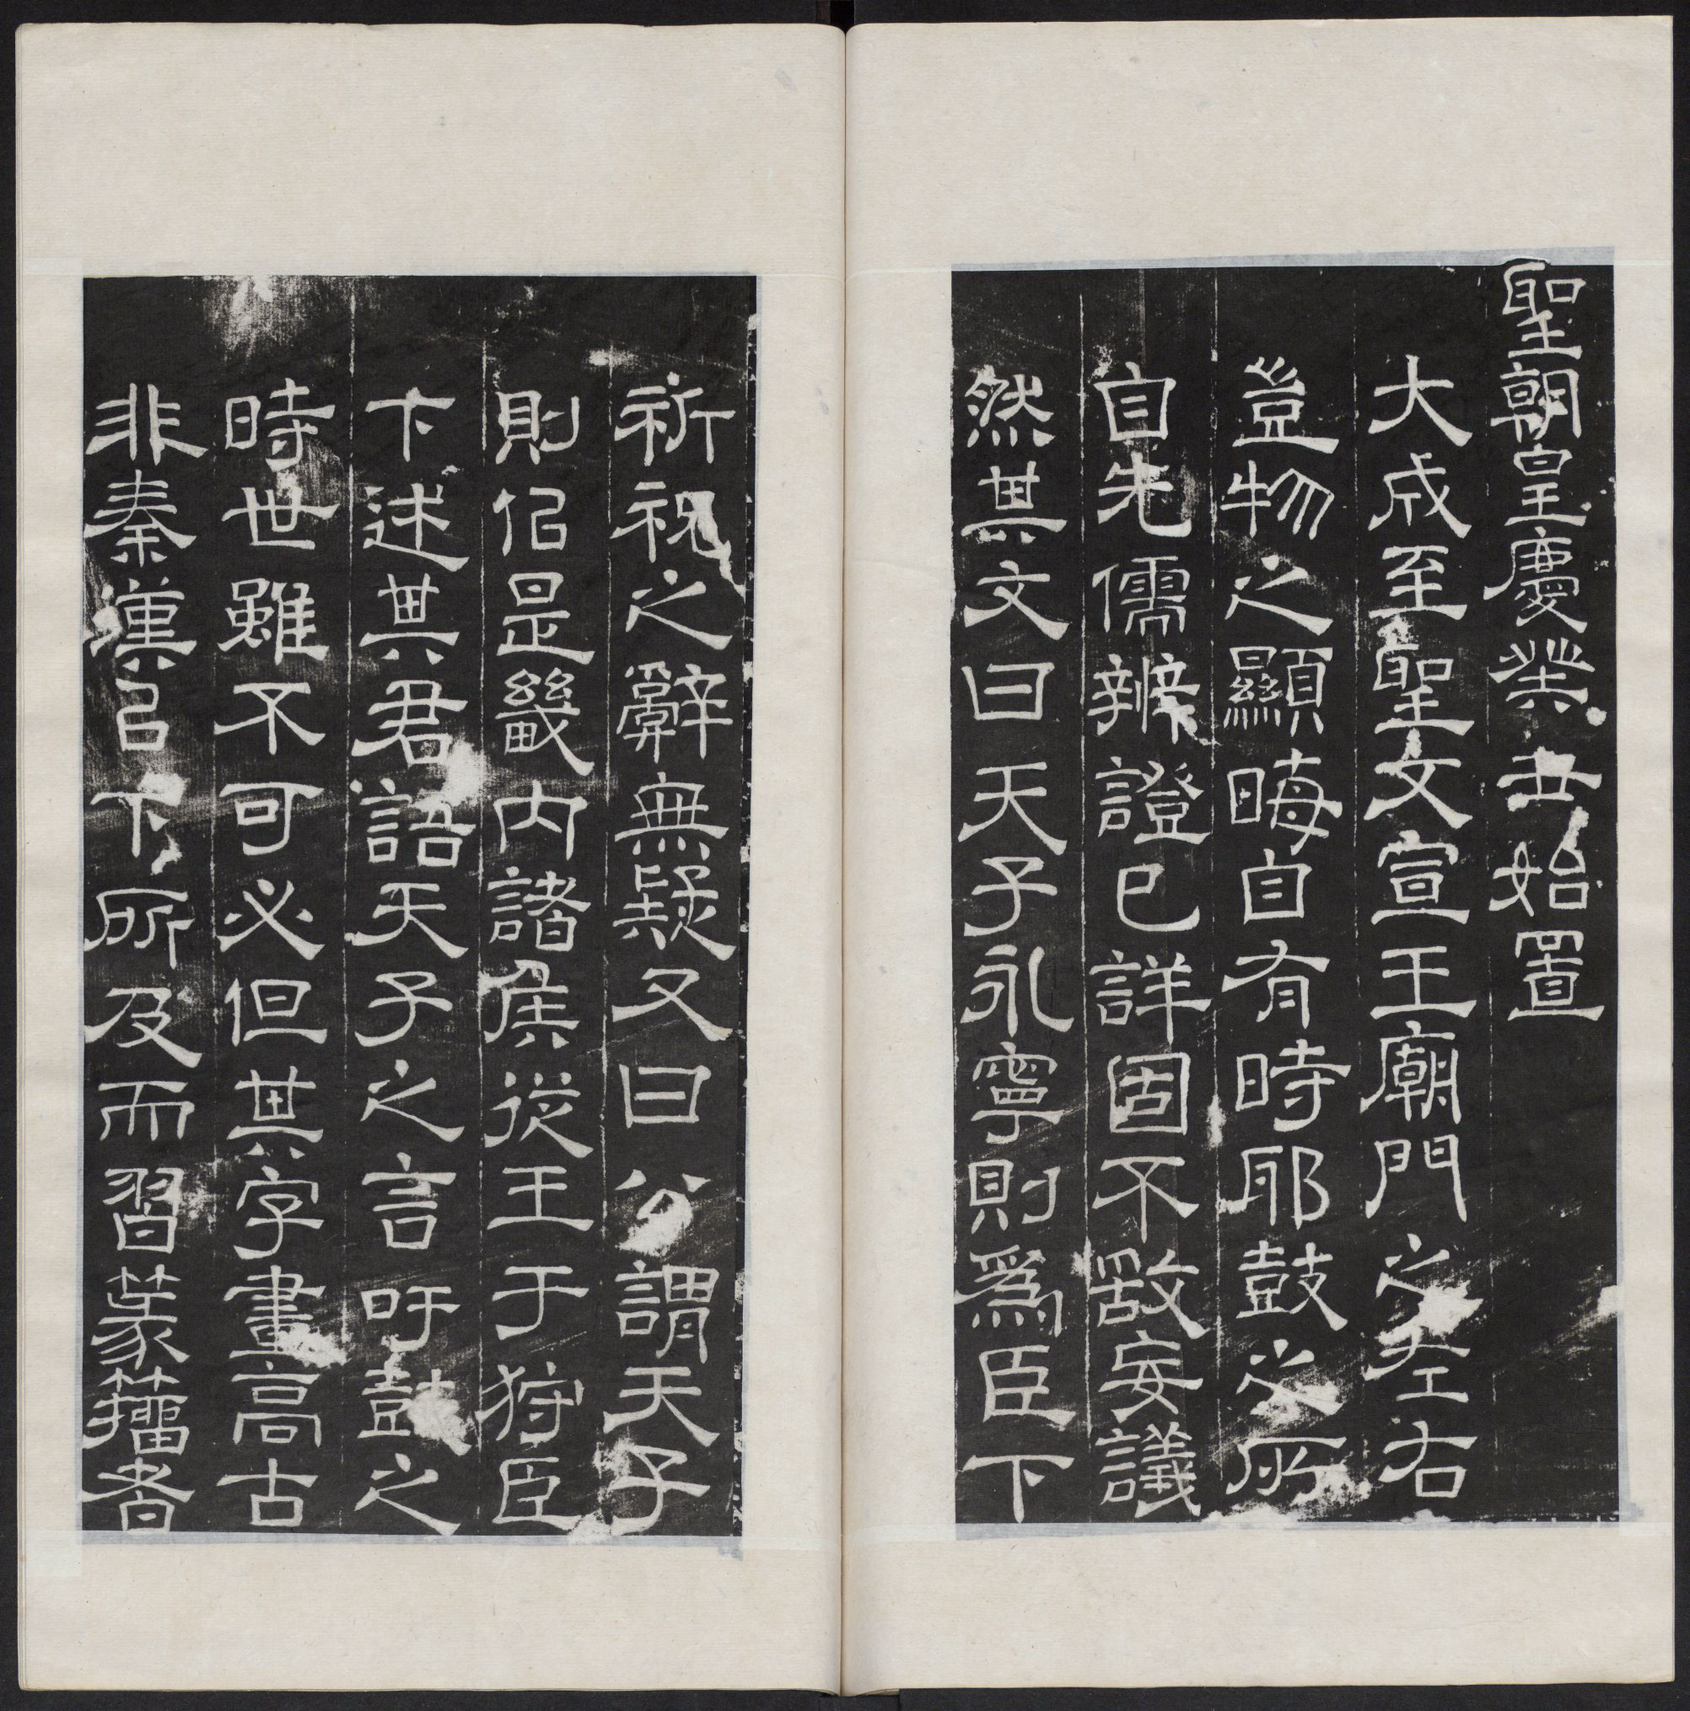 聖朝皇慶癸丑始置
大成至聖文宣王廟門之左右
豈物之顯晦自有時耶鼓之所
自先儒辨證已詳固不敢妄議
然其文曰天子永寧則爲臣下
祈祝之辭無疑又曰公謂天子
則似是畿內諸侯從王于狩臣
下述其君語天子之言吁鼓之
時世雖不可必但其字畫高古
非秦漢㠯下所及而習篆籀者